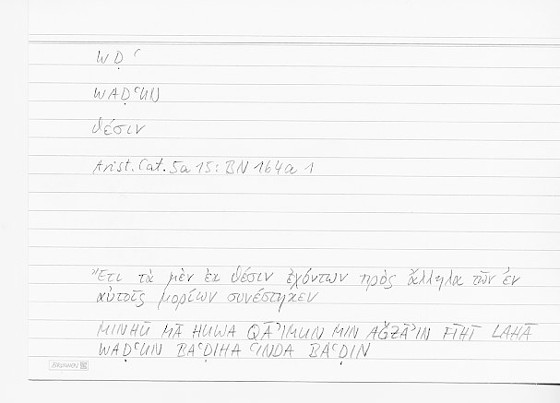 WḌʿ
WAḌʿUN
θέσιν
Arist. Cat. 5a 15: BN 164a 1
Ἔτι τὰ μὲν ἐκ θέσιν ἐχόντων πρὸς ἄλληλα τῶν ἐν
αὐτοῖς μορίων συνέστηκεν
MINHŪ MĀ HUWA QĀʾIMUN MIN AĞZĀʾIN FĪHĪ LAHĀ
WAḌʿUN BAʿḌIHA ʿINDA BAʿḌIN